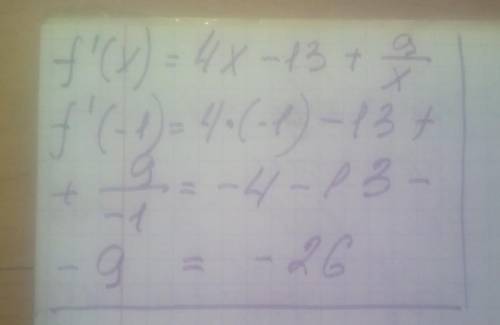 f'(x) = 4x - 13 + 9/x
f'(-1) = 4·(-1) - 13 +
+ 9/-1 = -4 - 13 -
- 9 = - 26